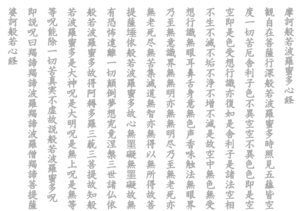 摩訶般若波羅蜜多心経
観自在菩薩行深般若波羅蜜多時照見五蘊皆空
度一切苦厄舎利子色不異空空不異色色即是空
空即是色受想行識亦復如是舎利子是諸法空相
不生不滅不垢不浄不増不減是故空中無色無受
想行識無眼耳鼻舌身意無色声香味触法無眼界
乃至無意識界無無明亦無無明尽乃至無老死亦
無老死尽無苦集滅道無智亦無得以無所得故菩
提薩埵依般若波羅蜜多故心無罣礙無罣礙故無
有恐怖遠離一切顛倒夢想究竟涅槃三世諸仏依
般若波羅蜜多故得阿耨多羅三藐三菩提故知般
若波羅蜜多是大神呪是大明呪是無上呪是無等
等呪能除一切苦真実不虚故説般若波羅蜜多呪
即説呪曰羯諦羯諦波羅羯諦波羅僧羯諦菩提薩
婆訶般若心経